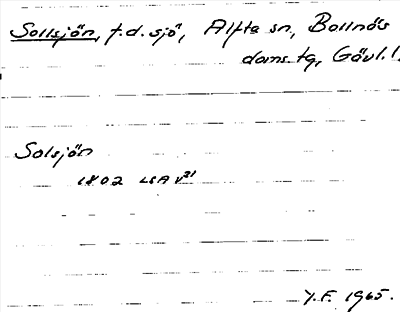 Sollsjön, f.d. sjö, Alfta sn, Bollnäs
doms-tg, Gävl. l.
Solsjön
1802 LSA V21
Y.F. 1965.